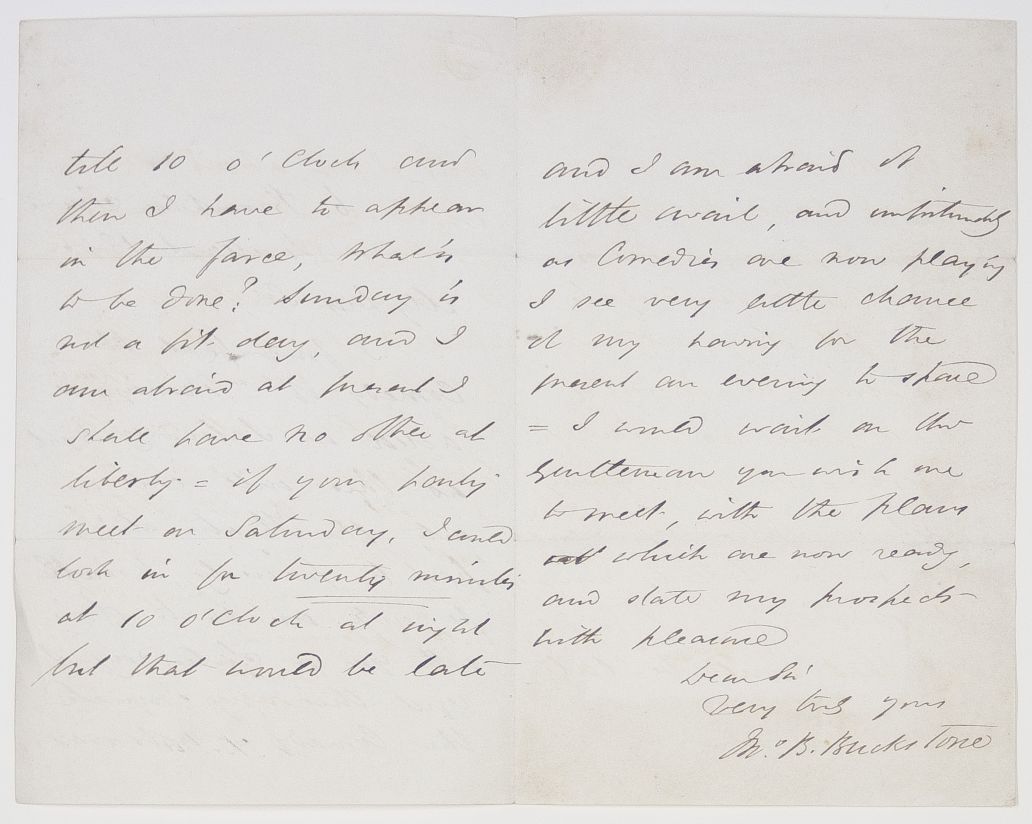 till 10 o'Clock and
then I have to appear
in the farce, What's
to be done? Sunday is
not a fit day, and I
am afraid at present I
shall have no other at
liberty = if your party
meet on Saturday, I could
look in for twenty minutes
at 10 o'Clock at night
but that would be late
and I am afraid of
little avail, and unfortunately
as Comedies are now playing
I see very little chance
of my having for the
present an evening to spare
= I would wait on the
Gentleman you wish me
to meet, with the plans
which are now ready,
and state my prospects
with pleasure
Dear Sir
Very truly yours
Jno. B. Buckstone